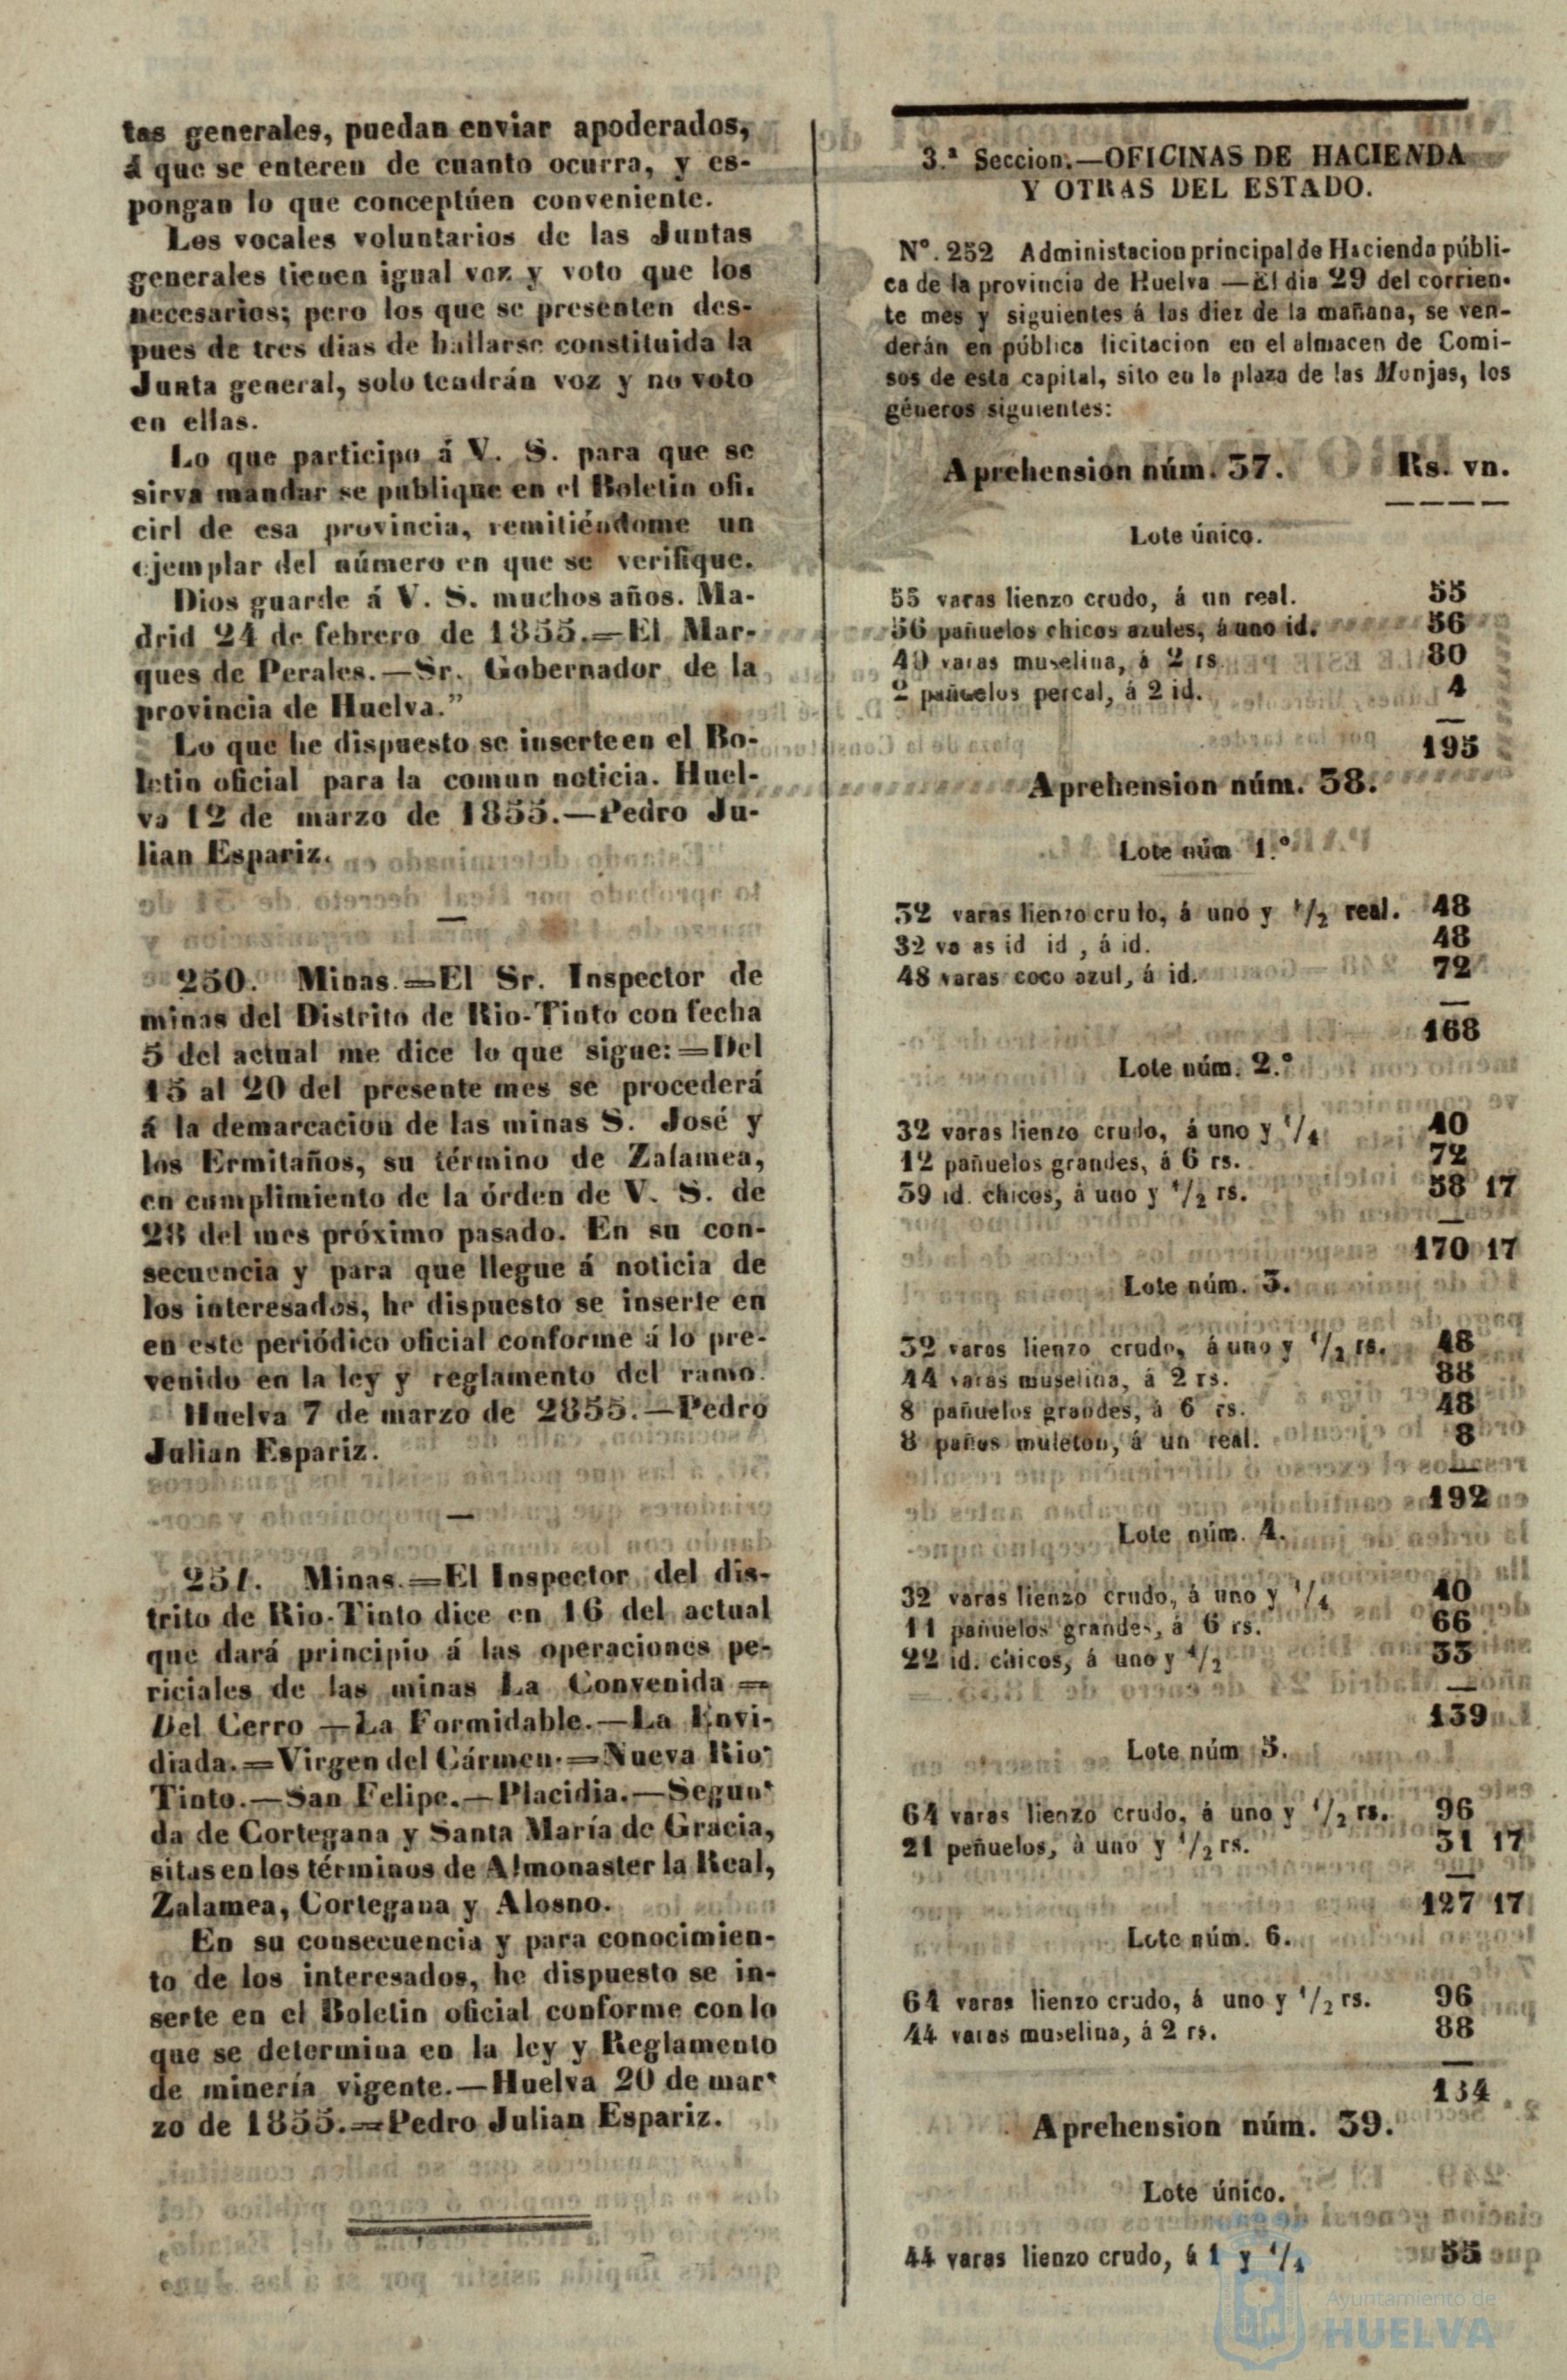 tas generales, puedan enviar apoderados,
á que se enteren de cuanto ocurra, y es-
pongan lo que conceptúen conveniente.
Los vocales voluntarios de las Juntas
generales tienen igual voz y voto que los
necesarios; pero los que se presenten des-
pues de tres dias de hallarse constituida la
Junta general, solo tendrán voz y no voto
en ellas.
Lo que participo á V. S. para que se
sirva mandar se publique en el Boletin ofi.
cirl de esa provincia, remitiéndome un
ejemplar del número en que se verifique.
Dios guarde á V. S. muchos años. Ma-
drid 24 de febrero de 1855.=El Mar-
ques de Perales.—Sr. Gobernador de la
provincia de Huelva.”
Lo que he dispuesto se inserte en el Bo-
letin oficial para la comun noticia. Huel-
va 12 de marzo de 1855.—Pedro Ju-
lian Espariz.
250. Minas.=El Sr. Inspector de
minas del Distrito de Rio-Tinto con fecha
5 del actual me dice lo que sigue:=Del
15 al 20 del presente mes se procederá
á la demarcacion de las minas S. José y
los Ermitaños, su término de Zalamea,
en cumplimiento de la órden de V. S. de
28 del mes próximo pasado. En su con-
secuencia y para que llegue á noticia de
los interesados, he dispuesto se inserte en
en este periódico oficial conforme á lo pre-
venido en la ley y reglamento del ramo.
Huelva 7 de marzo de 2855.—Pedro
Julian Espariz.
251. Minas.=El Inspector del dis-
trito de Rio-Tinto dice en 16 del actual
que dará principio á las operaciones pe-
riciales de las minas La Convenida =
Del Cerro —La Formidable.—La Envi-
diada.=Virgen del Cármen.=Nueva Rio-
Tinto.—San Felipe.—Placidia.—Segun-
da de Cortegana y Santa María de Gracia,
sitas en los términos de Almonaster la Real,
Zalamea, Cortegana y Alosno.
En su consecuencia y para conocimien-
to de los interesados, he dispuesto se in-
serte en el Boletin oficial conforme con lo
que se determina en la ley y Reglamento
de minería vigente.—Huelva 20 de mar-
zo de 1855.=Pedro Julian Espariz.
3.ª Seccion.—OFICINAS DE HACIENDA
Y OTRAS DEL ESTADO.
Nº. 252 Administacion principal de Hacienda públi-
ca de la provincia de Huelva —El dia 29 del corrien-
te mes y siguientes á las diez de la mañana, se ven-
derán en pública licitacion en el almacen de Comi-
sos de esta capital, sito en la plaza de las Monjas, los
géneros siguientes:
Aprehension núm. 37. Rs. vn.
Lote único.
55 varas lienzo crudo, á un real. 55
56 pañuelos chicos azules, á uno id. 56
40 varas muselina, á 2 rs. 80
2 pañuelos percal, á 2 id. 4
195
Aprehension núm. 38.
Lote núm 1.º
32 varas lienzo crudo, á uno y 1/2 real. 48
32 va as id id , á id. 48
48 varas coco azul, á id. 72
168
Lote núm. 2.º
32 varas lienzo crudo, á uno y 1/4 40
12 pañuelos grandes, á 6 rs. 72
39 id. chicos, á uno y 1/2 rs. 58 17
170 17
Lote núm. 3.
32 varas lienzo crudo, á uno y 1/2 rs. 48
44 varas muselina, á 2 rs. 88
8 pañuelos grandes, á 6 rs. 48
8 paños muleton, á un real. 8
192
Lote núm. 4.
32 varas lienzo crudo, á uno y 1/4 40
11 pañuelos grandes, á 6 rs. 66
22 id. chicos, á uno y 1/2 33
139
Lote núm 5.
64 varas lienzo crudo, á uno y 1/2 rs. 96
21 peñuelos, á uno y 1/2 rs. 31 17
127 17
Lote núm. 6.
64 varas lienzo crudo, á uno y 1/2 rs. 96
44 varas muselina, á 2 rs. 88
134
Aprehension núm. 39.
Lote único.
44 varas lienzo crudo, á 1 y 1/4 55
Ayuntamiento de
HUELVA